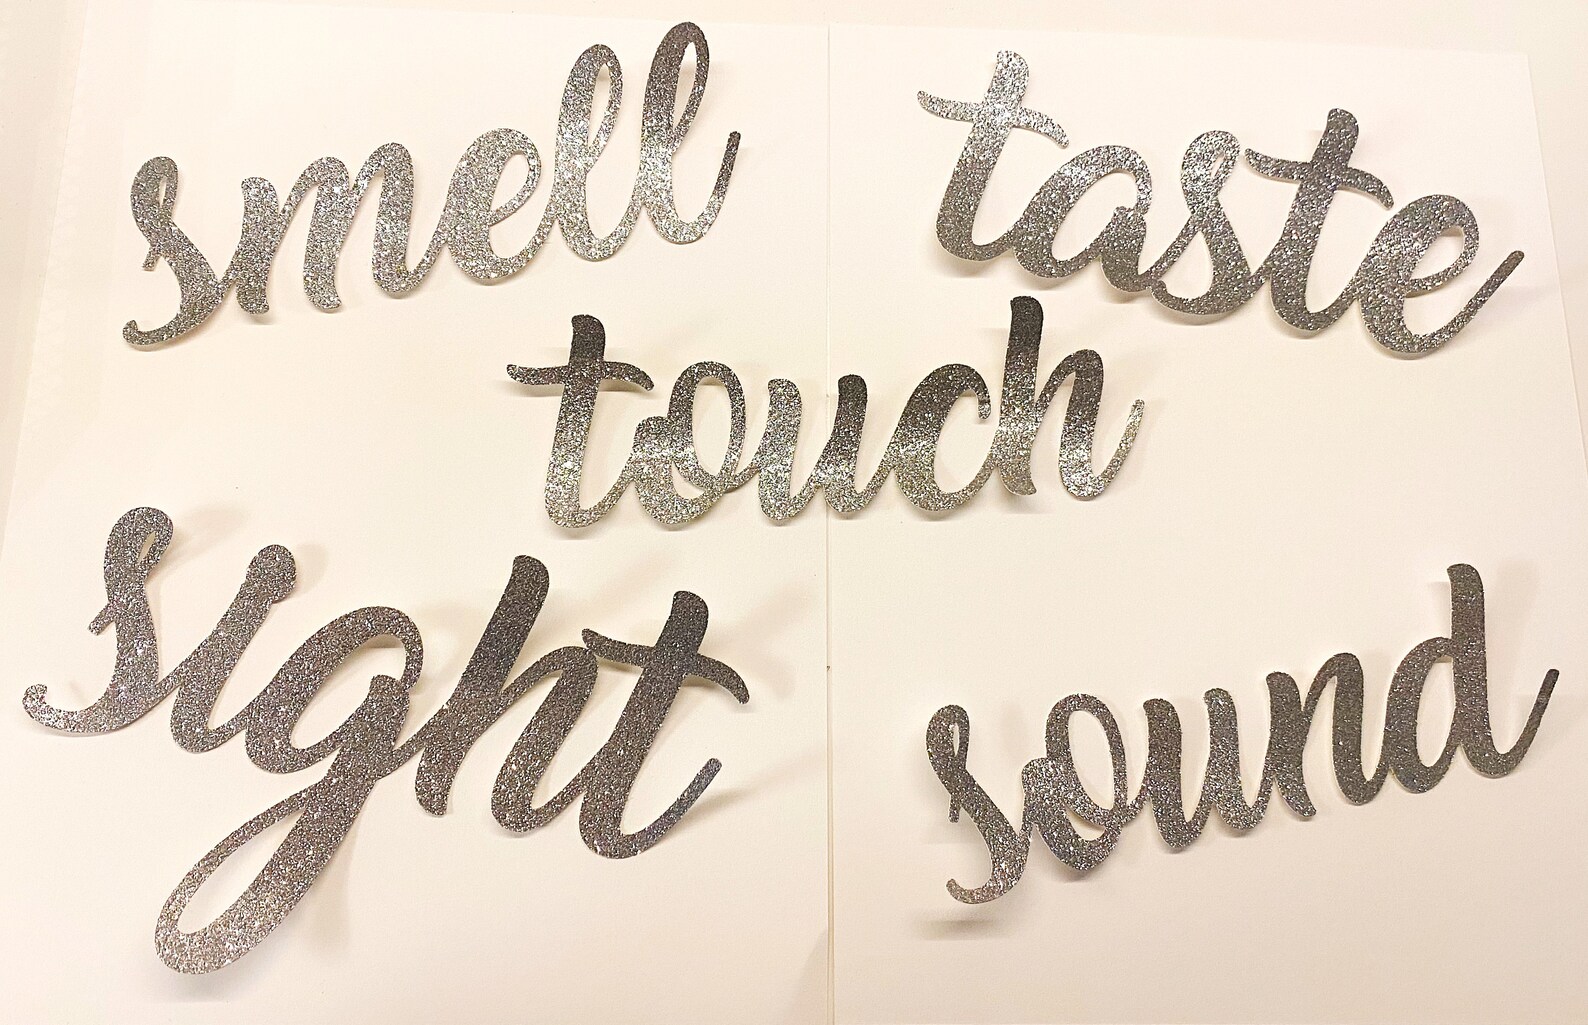 smell
taste
touch
sight
sound